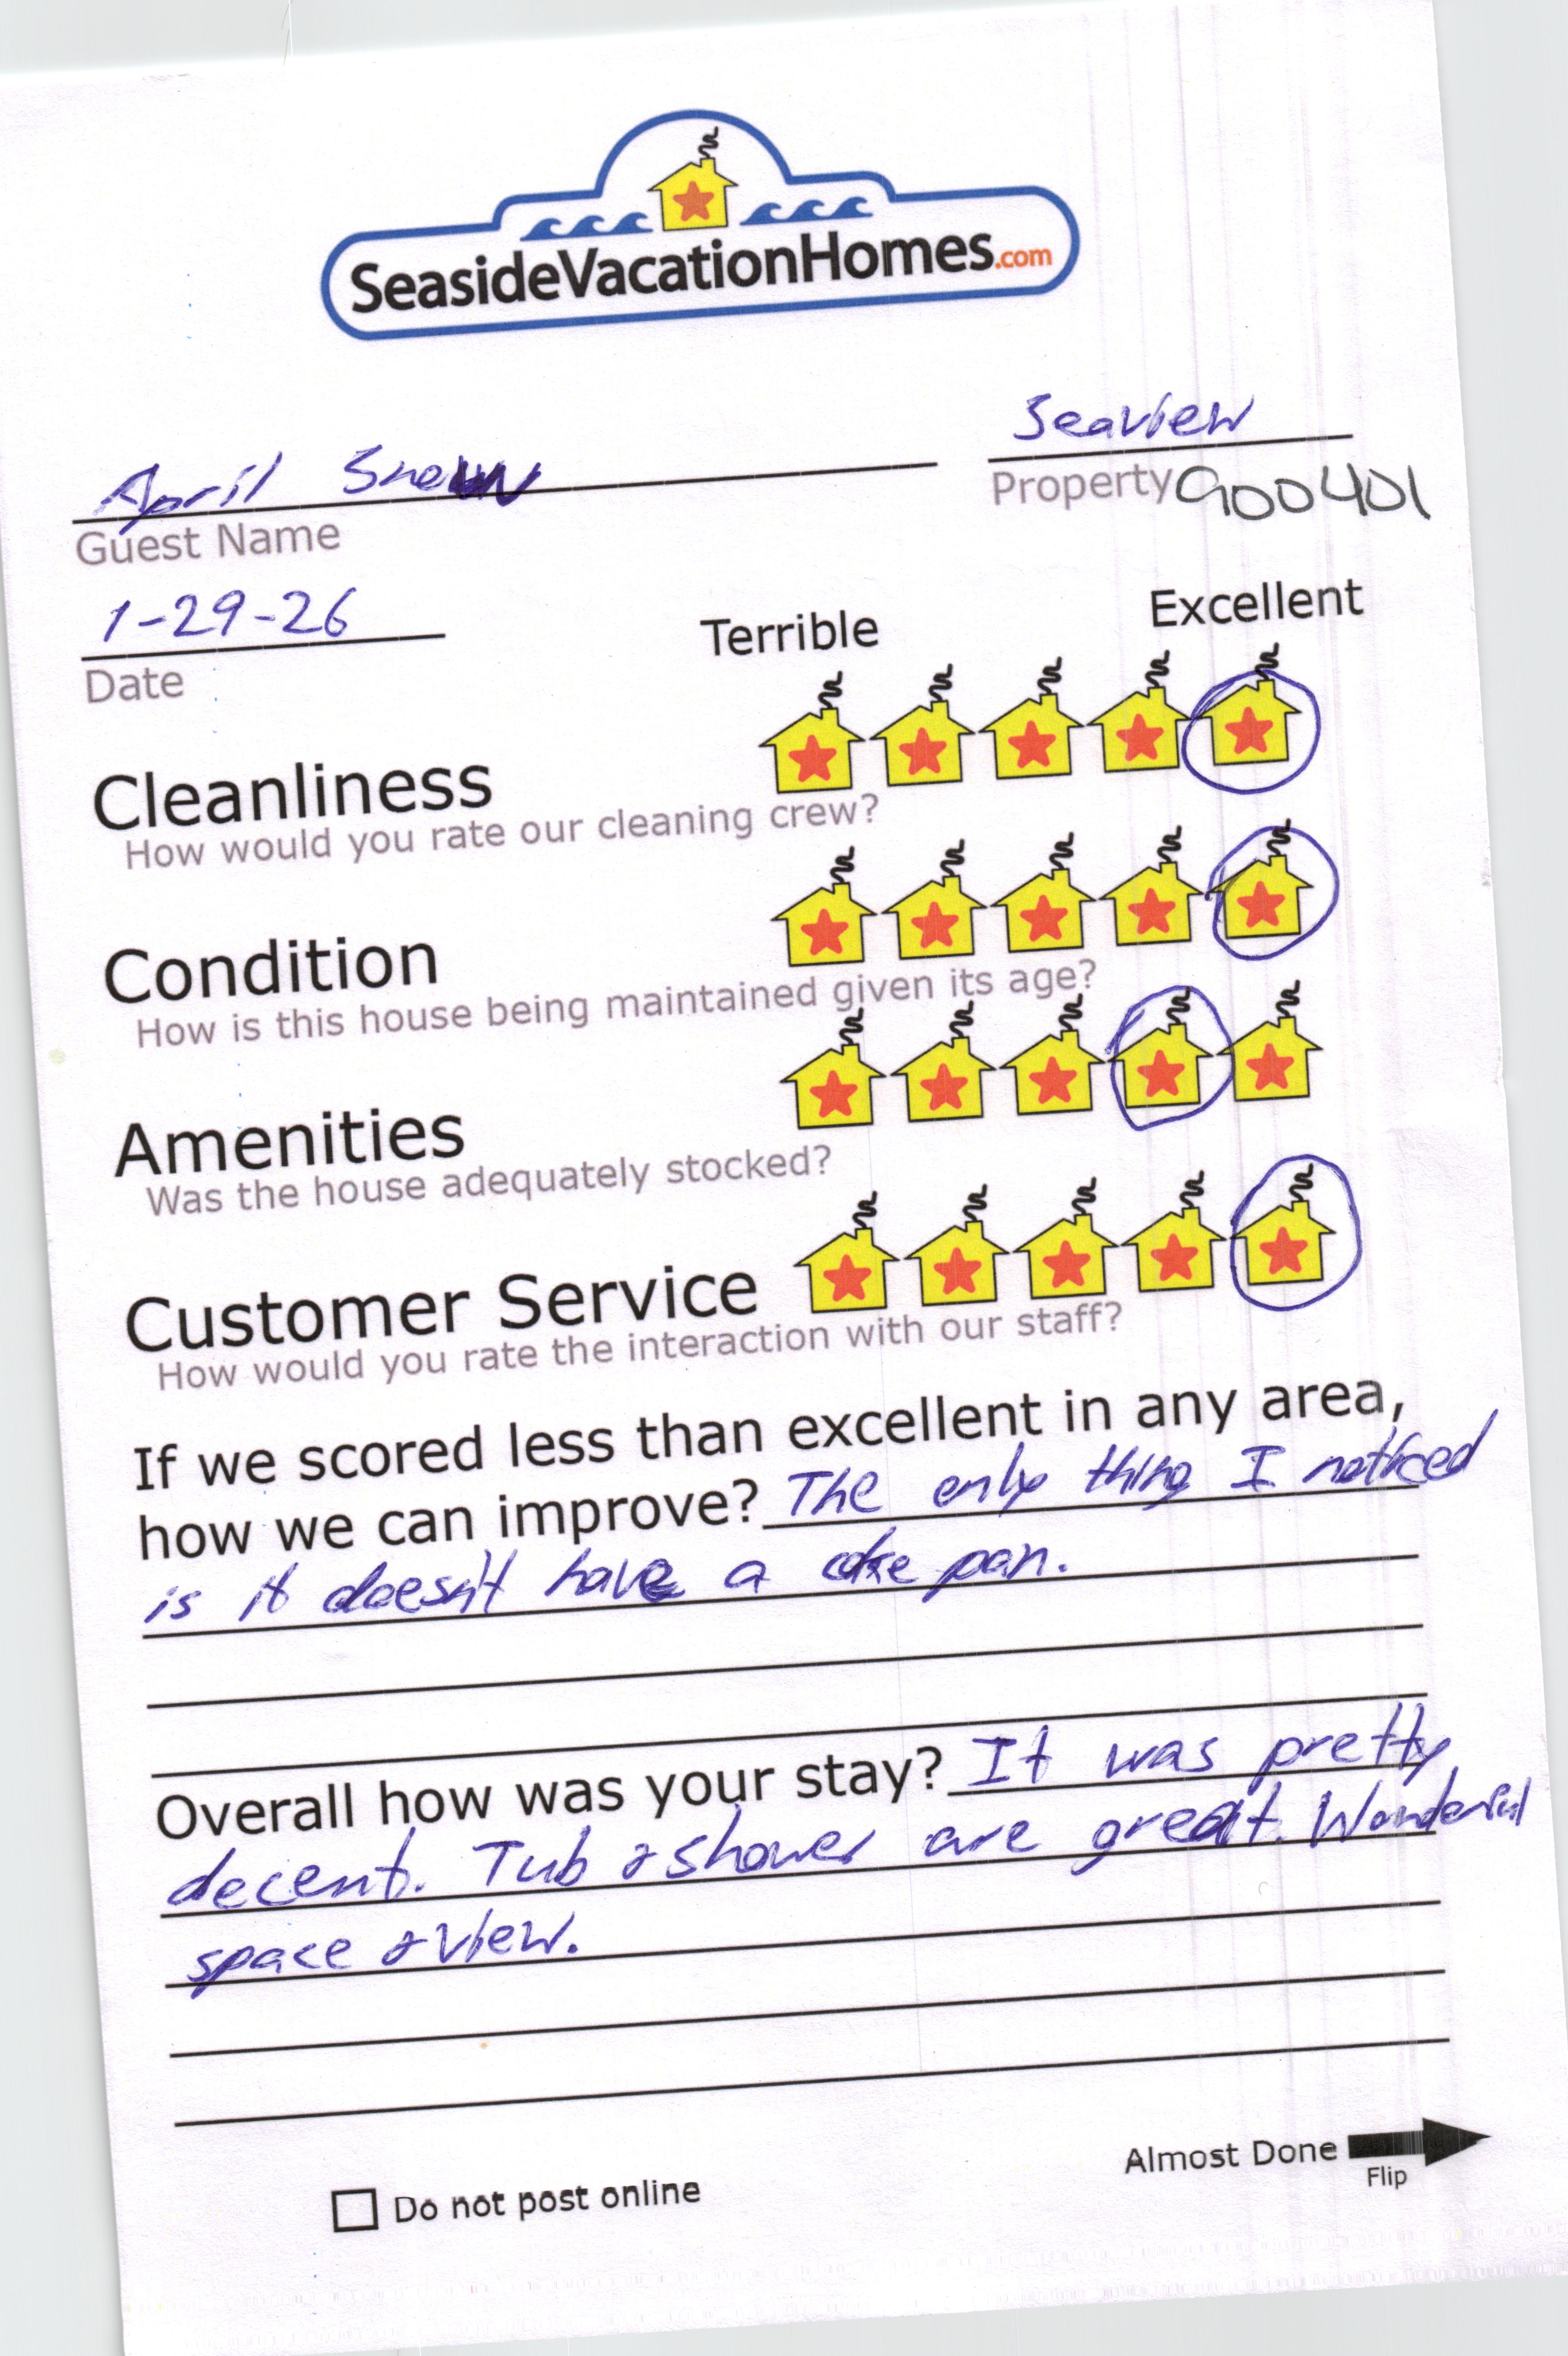 SeasideVacationHomes.com
April Snow
Seaview
Guest Name
Property 900401
1-29-26
Date
Terrible
Excellent
Cleanliness
How would you rate our cleaning crew?
Condition
How is this house being maintained given its age?
Amenities
Was the house adequately stocked?
Customer Service
How would you rate the interaction with our staff?
If we scored less than excellent in any area,
how we can improve? The only thing I noticed
is it doesn't have a cake pan.
Overall how was your stay? It was pretty
decent. Tub & shower are great. Wonderful
space & view.
Almost Done
Flip
Do not post online